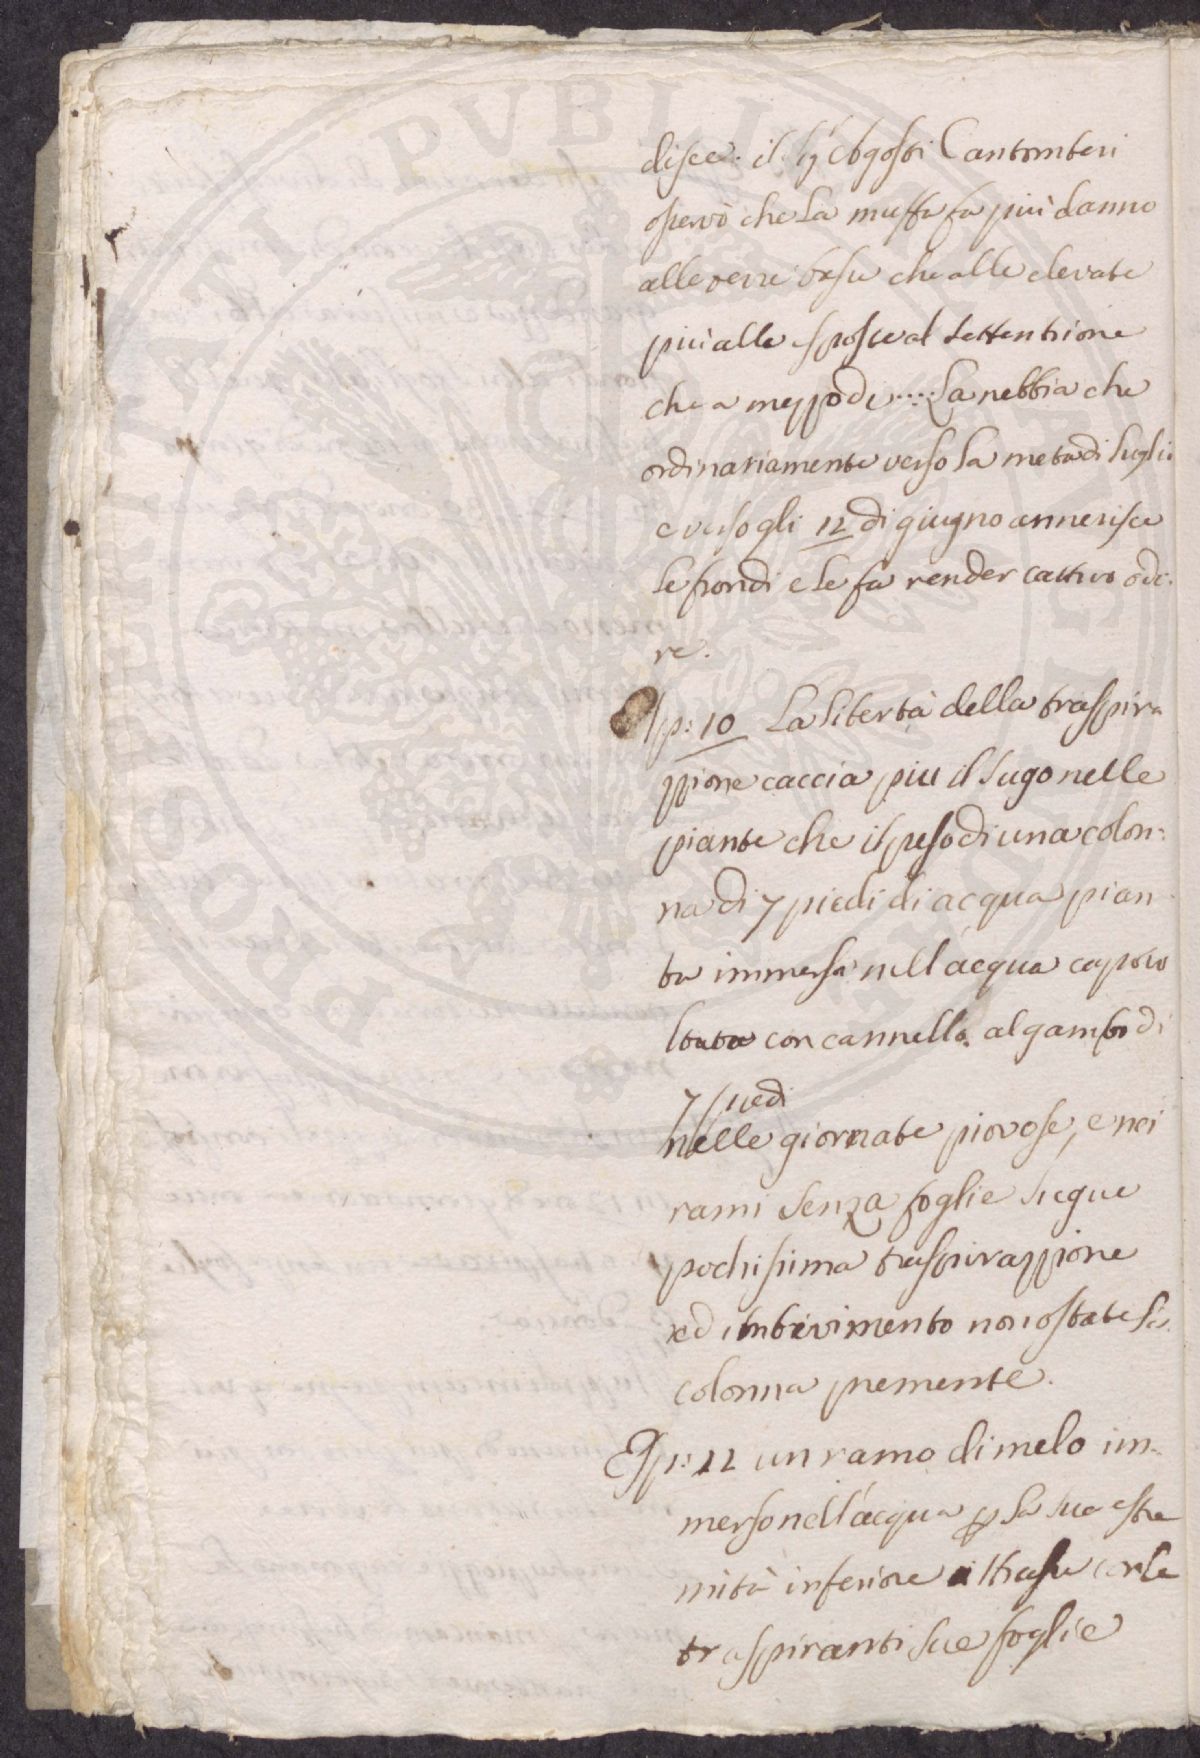 disce. il Cantonteri
osservò che la muffa fa più danno
alle terre basse che alle elevate
più alle esposte al settentrione
che a mezzodì.... La nebbia che
ordinariamente verso la metà di luglio
e verso gli 12 di giugno annerisce
le frondi e le fa render cattivo odo-
re.
Esp: 10 La libertà della traspira
zzione caccia più il sugo nelle
piante che il peso di una colon:
na di 7 piedi di acqua pian
ta immersa nell'acqua capovo
ltata con cannello al gambo di
7 piedi
nelle giornate piovose, e nei
rami senza foglie siegue
pochissima traspirazzione
ed imbevimento non ostate la
colonna premente.
Esp: 12 un ramo di melo im-
merso nell'acqua p la sua estre
mità inferiore attrasse con le
traspiranti sue foglie